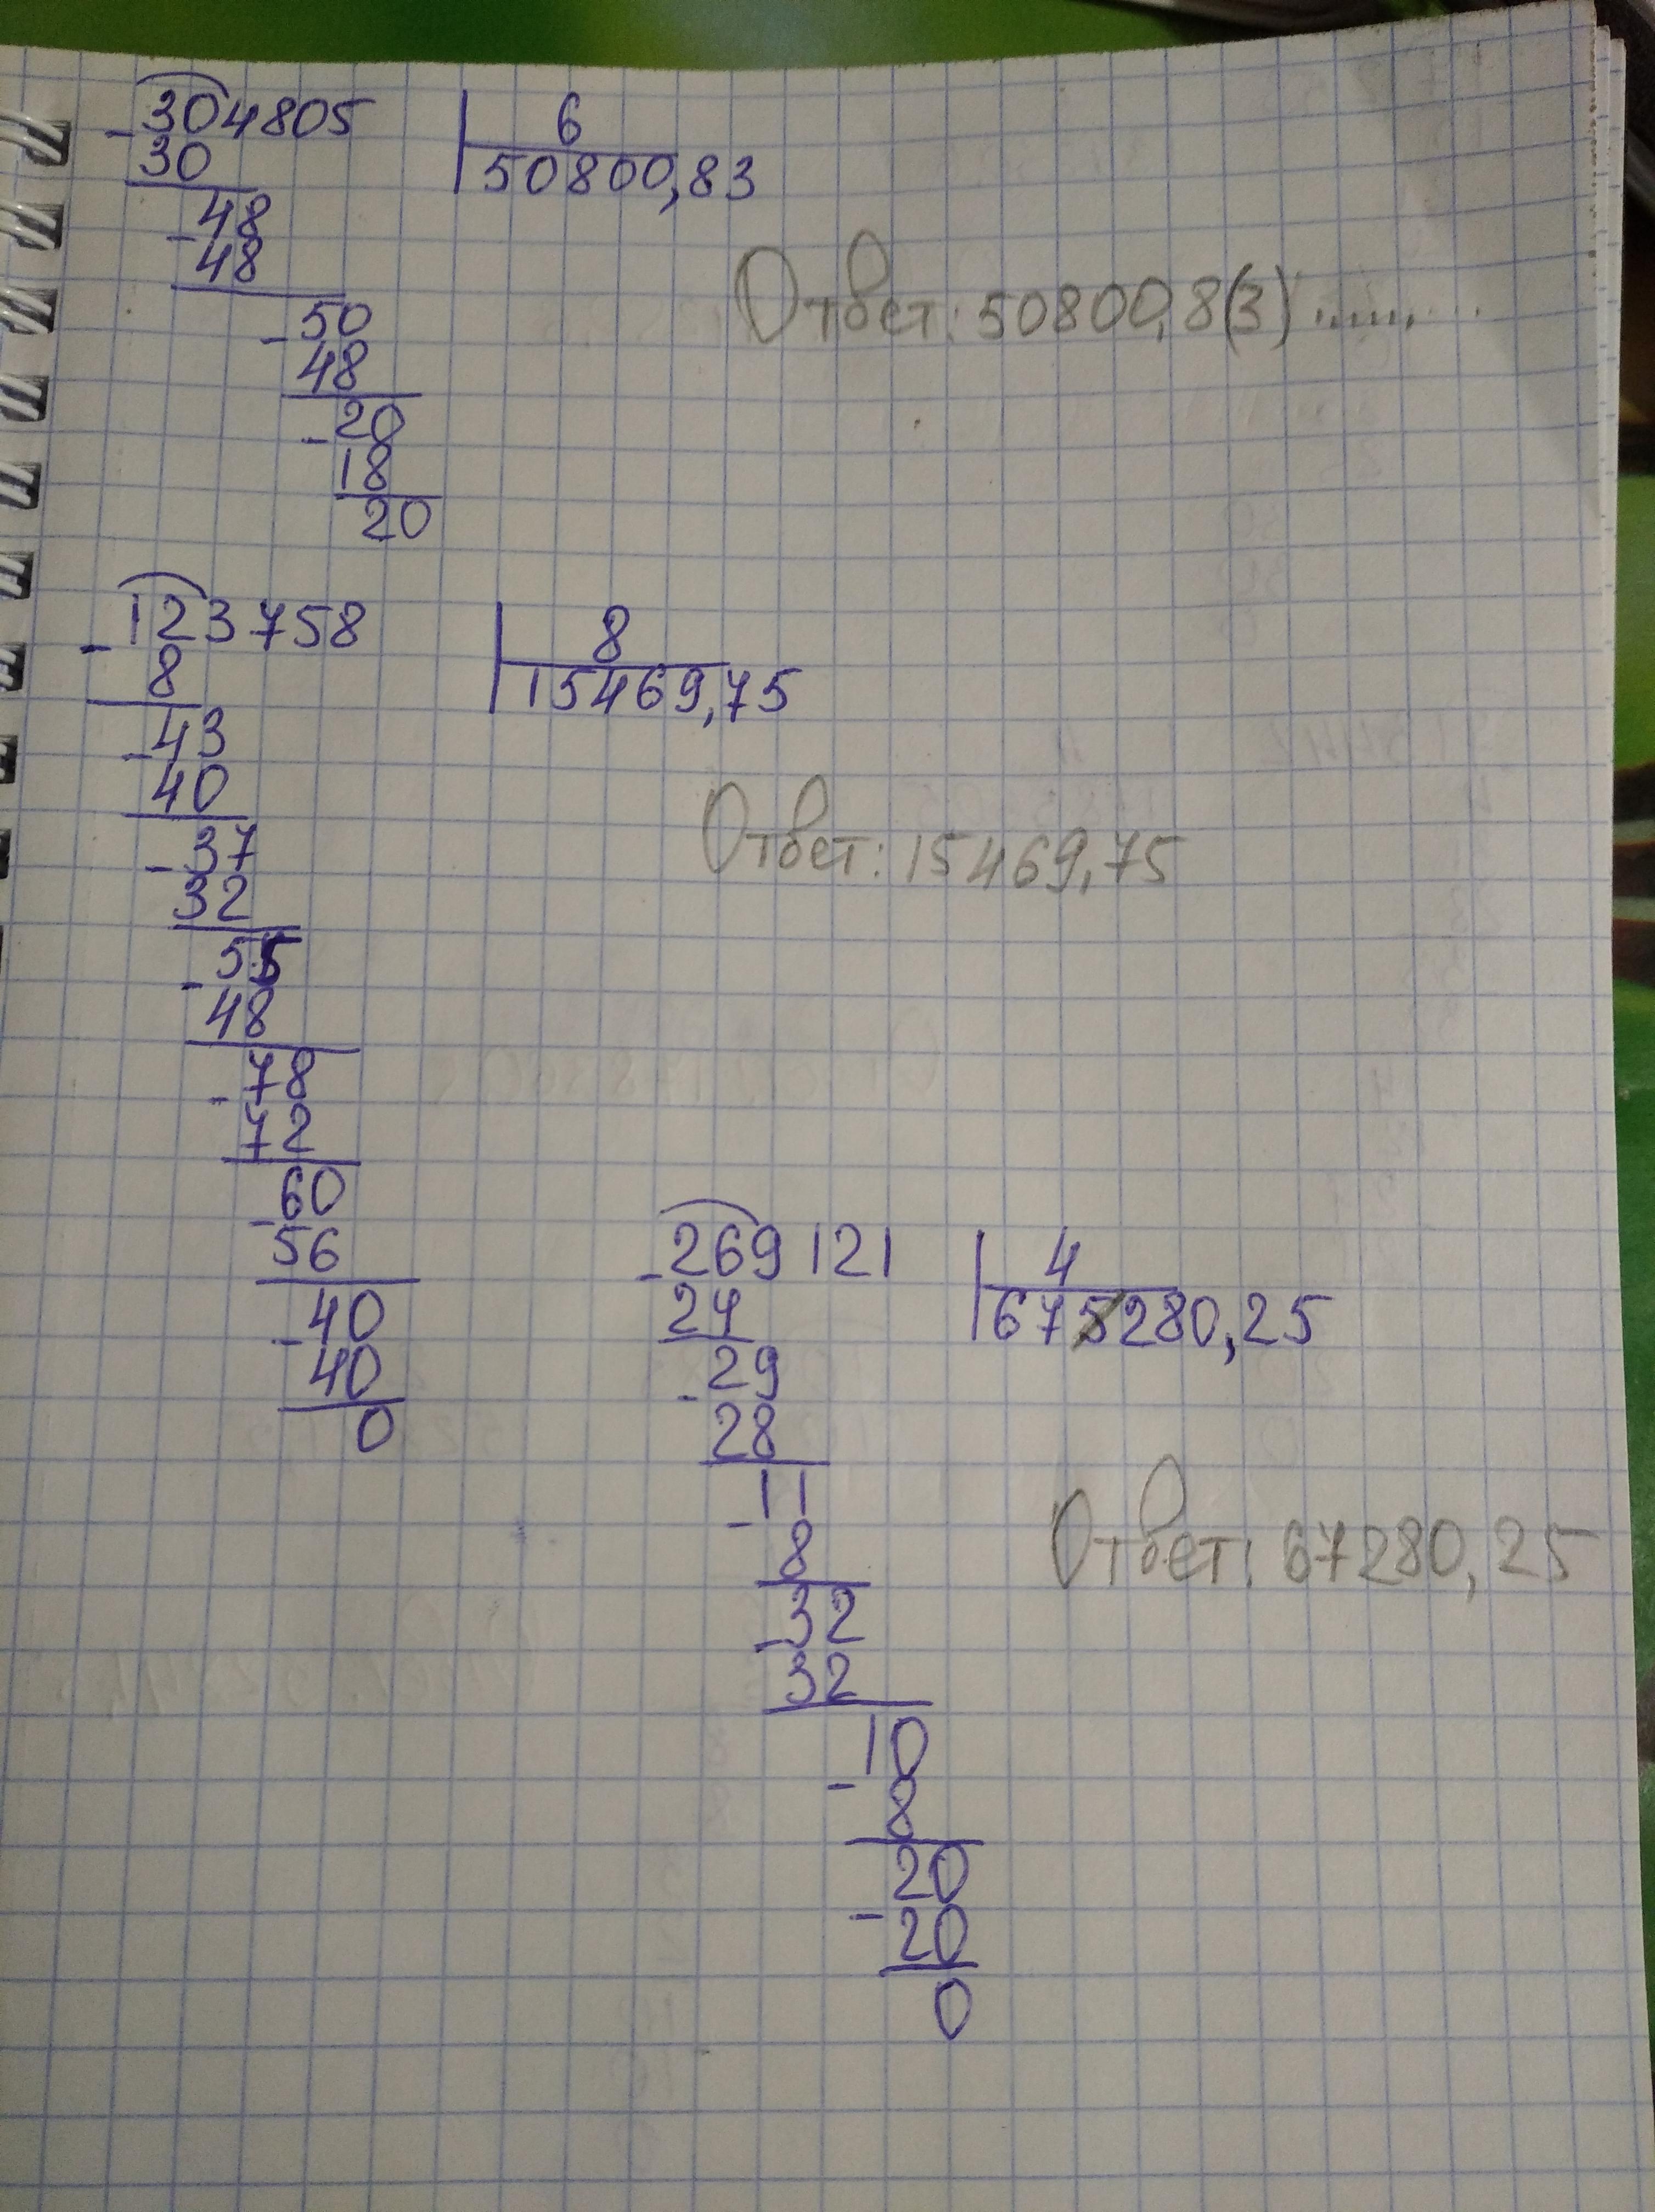 304805 6
30 50800,83
48
48
Ответ: 50800,8(3)........
50
48
20
18
20
123758 8
8 15469,75
43
40
Ответ: 15469,75
37
32
55
48
78
72
60
56
40
40
0
269121 4
24 675280,25
29
28
11
8
Ответ: 67280,25
32
32
10
8
20
20
0